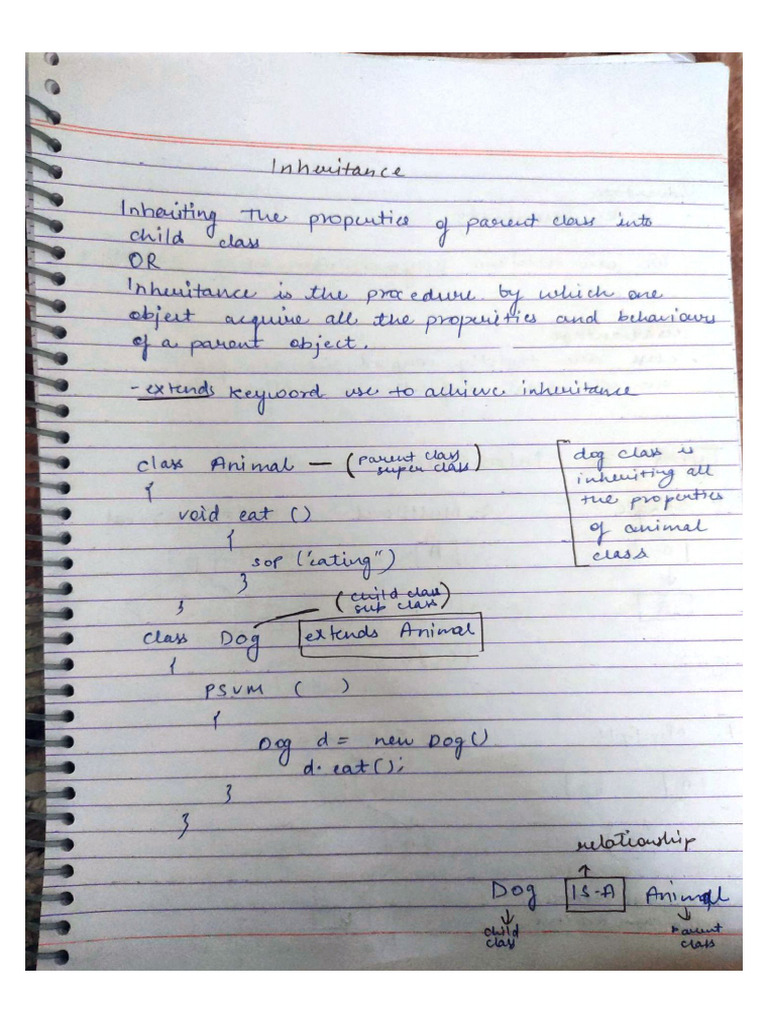 Inheritance
Inheriting the propertice of parent class into
child class
OR
Inheritance is the procedure by which one
object acquire all the properities and behaviours
of a parent object.
- extends keyword use to achieve inheritance
class Animal — (parent class
super class)
{
void eat ()
{
sop ("eating")
}
}
dog class is
inheriting all
the properties
of animal
class
(child class
sub class)
class Dog extends Animal
{
PSVM ( )
{
Dog d = new Dog()
d. eat();
}
}
relationship
↑
Dog IS-A Animal
↓ ↓
child
class
Parent
class